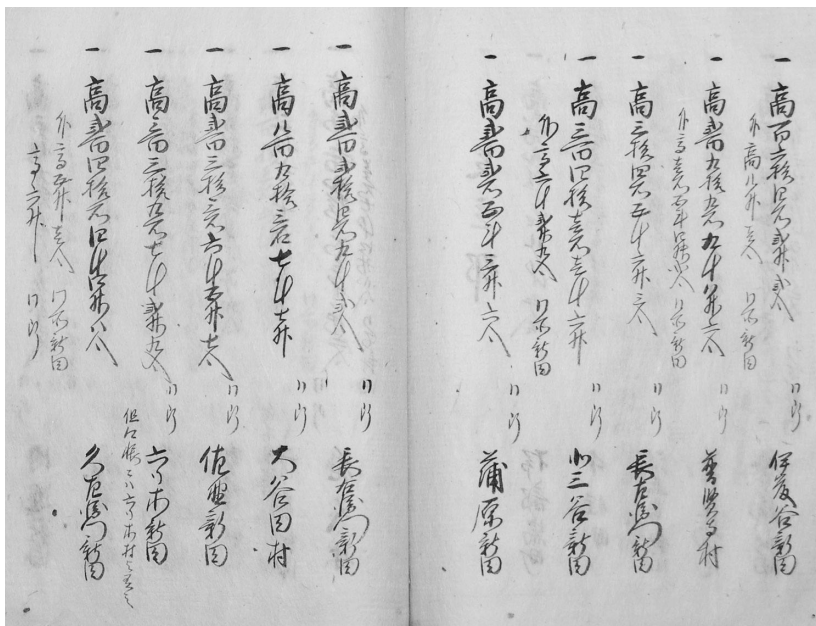 一 高百六拾四石弐升弐合 同所 伊藤谷新田
外高八升壱合 同所新田
一 高弐百九拾九石九斗八升六合 同所 普賢寺村
外高壱石五斗四升弐合 同所新田
一 高三拾四石五斗六升三合 同所 長右衛門新田
一 高三百四拾壱石壱斗六升 同所 小三谷新田
外高六斗弐升九合 同所新田
一 高弐百弐石五斗三升六合 同所 蒲原新田
一 高弐百弐拾四石九斗弐合 同所 長右衛門新田
一 高八百九拾三石七斗七升 同所 大谷田村
一 高弐百三拾三石六斗五升七合 同所 佐野新田
一 高三百三拾九石七斗弐升九合 同所 六ツ木新田
但江帳ニハ六ツ木村と
一 高弐百四拾石四斗四升八合 同所 久左衛門新田
外高五升壱合 同所新田
高六升 同所